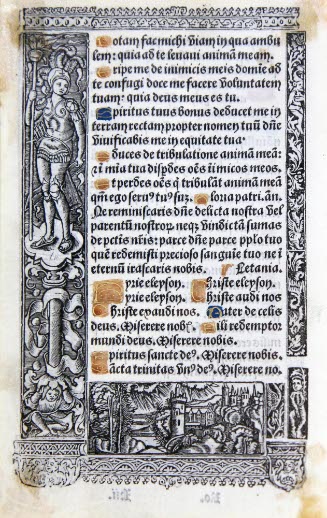 otam fac michi viam in qua ambu
lem: quia ad te levavi animã meam.
ripe me de inimicis meis domie ad
te confugi doce me facere voluntatem
tuam: quia deus meus es tu.
piritus tuus bonus deducet me in
terram rectam propter nomen tuũ dñe
vivificabis me in equitate tua
duces de tribulatione animã meã:
et in mia tua disperdes oẽs inimicos meos.
t perdes oẽs q̃ tribulãt animã meã
qm̃ ego servꝰ tuꝰ suʒ. loria patri. añ.
Ne reminiscaris dñe delicta nostra vel
parentũ nostroꝝ. neqʒ vindictã sumas
de pctis nr̃is: parce dñe parce pplo tuo
quẽ redemisti precioso sanguie tuo ne i
eternũ irascaris nobis. Letania.
yrie eleyson. hriste eleyson.
yrie eleyson. hriste audi nos
hriste exaudi nos. ater de celis
deus. Miserere nobꝭ. ili redemptor
mundi deus. Miserere nobis.
piritus sancte deꝰ. Miserere nobis.
ancta trinitas vnꝰ deꝰ. Miserere no.